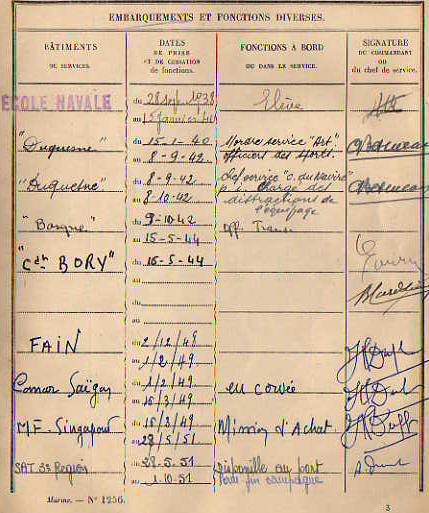 EMBARQUEMENTS ET FONCTIONS DIVERSES.
BÂTIMENTS
OU SERVICES.
DATES
DE PRISE
ET DE CESSATION
de fonctions.
FONCTIONS A BORD
OU DANS LE SERVICE.
SIGNATURE
DU COMMANDANT
OU
du chef de service.
ECOLE NAVALE
du 28 sept 1938
Elève
au
"Duquesne"
du 15-1-40
service "Art"
au 8-9-42
officier des sports.
"Duquesne"
du 8-9-42
Chef service "O. du Navire"
au 8-10-42
p. i. Chargé des
distractions de
l'équipage
"Basque"
du 9-10-42
off. Trans
au 15-5-44
"Cdt BORY"
du 16-5-44
au
du
au
FAIN
du 2/12/48
au 1/2/49
Comar Saïgon
du 1/2/49
en corvée
au 15/3/49
M.F. Singapour
du 15/3/49
Mission d'Achat.
au 28/5/51
SAT 3e Region
du 28.5.51
Disponible au port
au 1.10.51
fin campagne
Marine. — N° 1256.
3